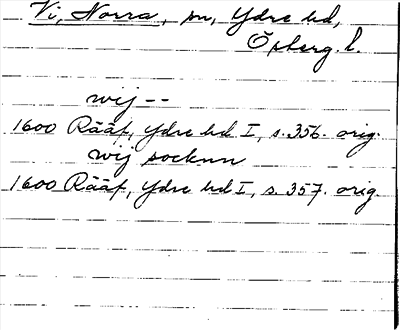 Vi, Norra, sn, Ydre hd,
Östberg. l.
wij --
1600 Rääf, Ydre hd I, s. 356. orig.
wij socknn
1600 Rääf, Ydre hd I, s. 357. orig.